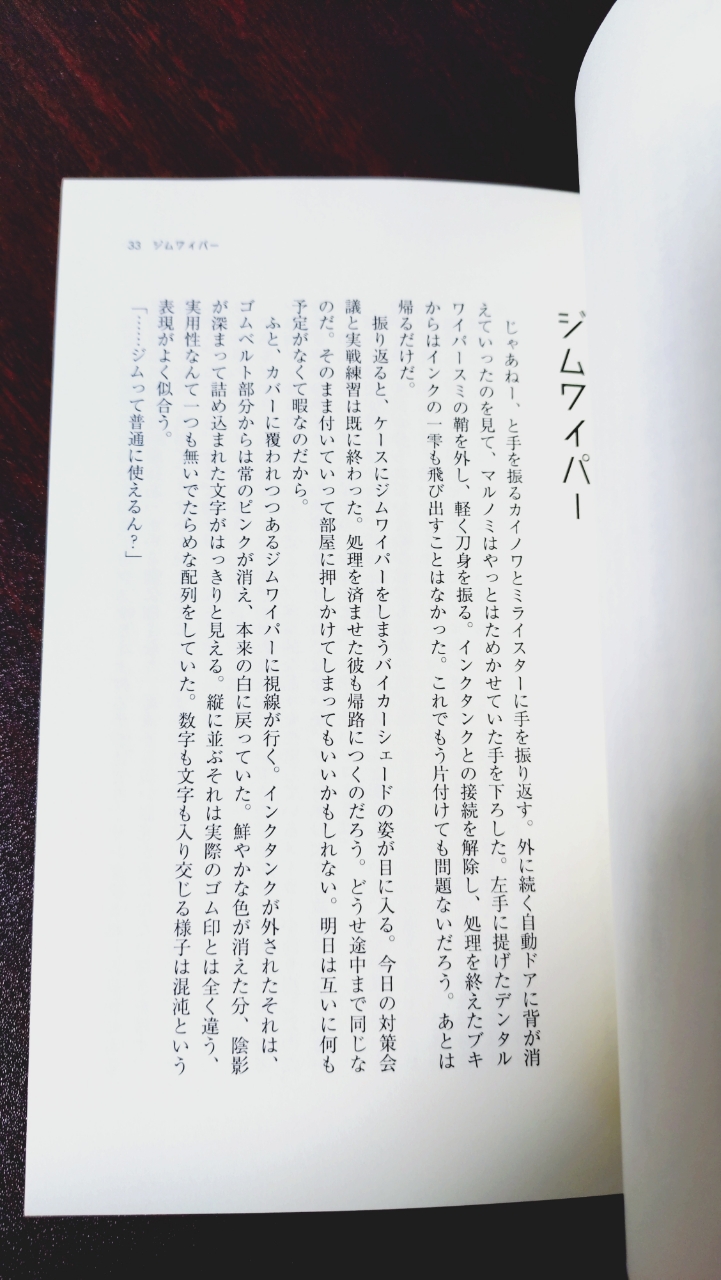 33　ジムワイパー
ジムワイパー
じゃあねー、と手を振るカイノワとミライスターに手を振り返す。外に続く自動ドアに背が消
えていったのを見て、マルノミはやっとはためかせていた手を下ろした。左手に提げたデンタル
ワイパースミの鞘を外し、軽く刀身を振る。インクタンクとの接続を解除し、処理を終えたブキ
からはインクの一雫も飛び出すことはなかった。これでもう片付けても問題ないだろう。あとは
帰るだけだ。
振り返ると、ケースにジムワイパーをしまうバイカーシェードの姿が目に入る。今日の対策会
議と実戦練習は既に終わった。処理を済ませた彼も帰路につくのだろう。どうせ途中まで同じな
のだ。そのまま付いていって部屋に押しかけてしまってもいいかもしれない。明日は互いに何も
予定がなくて暇なのだから。
ふと、カバーに覆われつつあるジムワイパーに視線が行く。インクタンクが外されたそれは、
ゴムベルト部分からは常のピンクが消え、本来の白に戻っていた。鮮やかな色が消えた分、陰影
が深まって詰め込まれた文字がはっきりと見える。縦に並ぶそれは実際のゴム印とは全く違う、
実用性なんて一つも無いでたらめな配列をしていた。数字も文字も入り交じる様子は混沌という
表現がよく似合う。
「……ジムって普通に使えるん？」